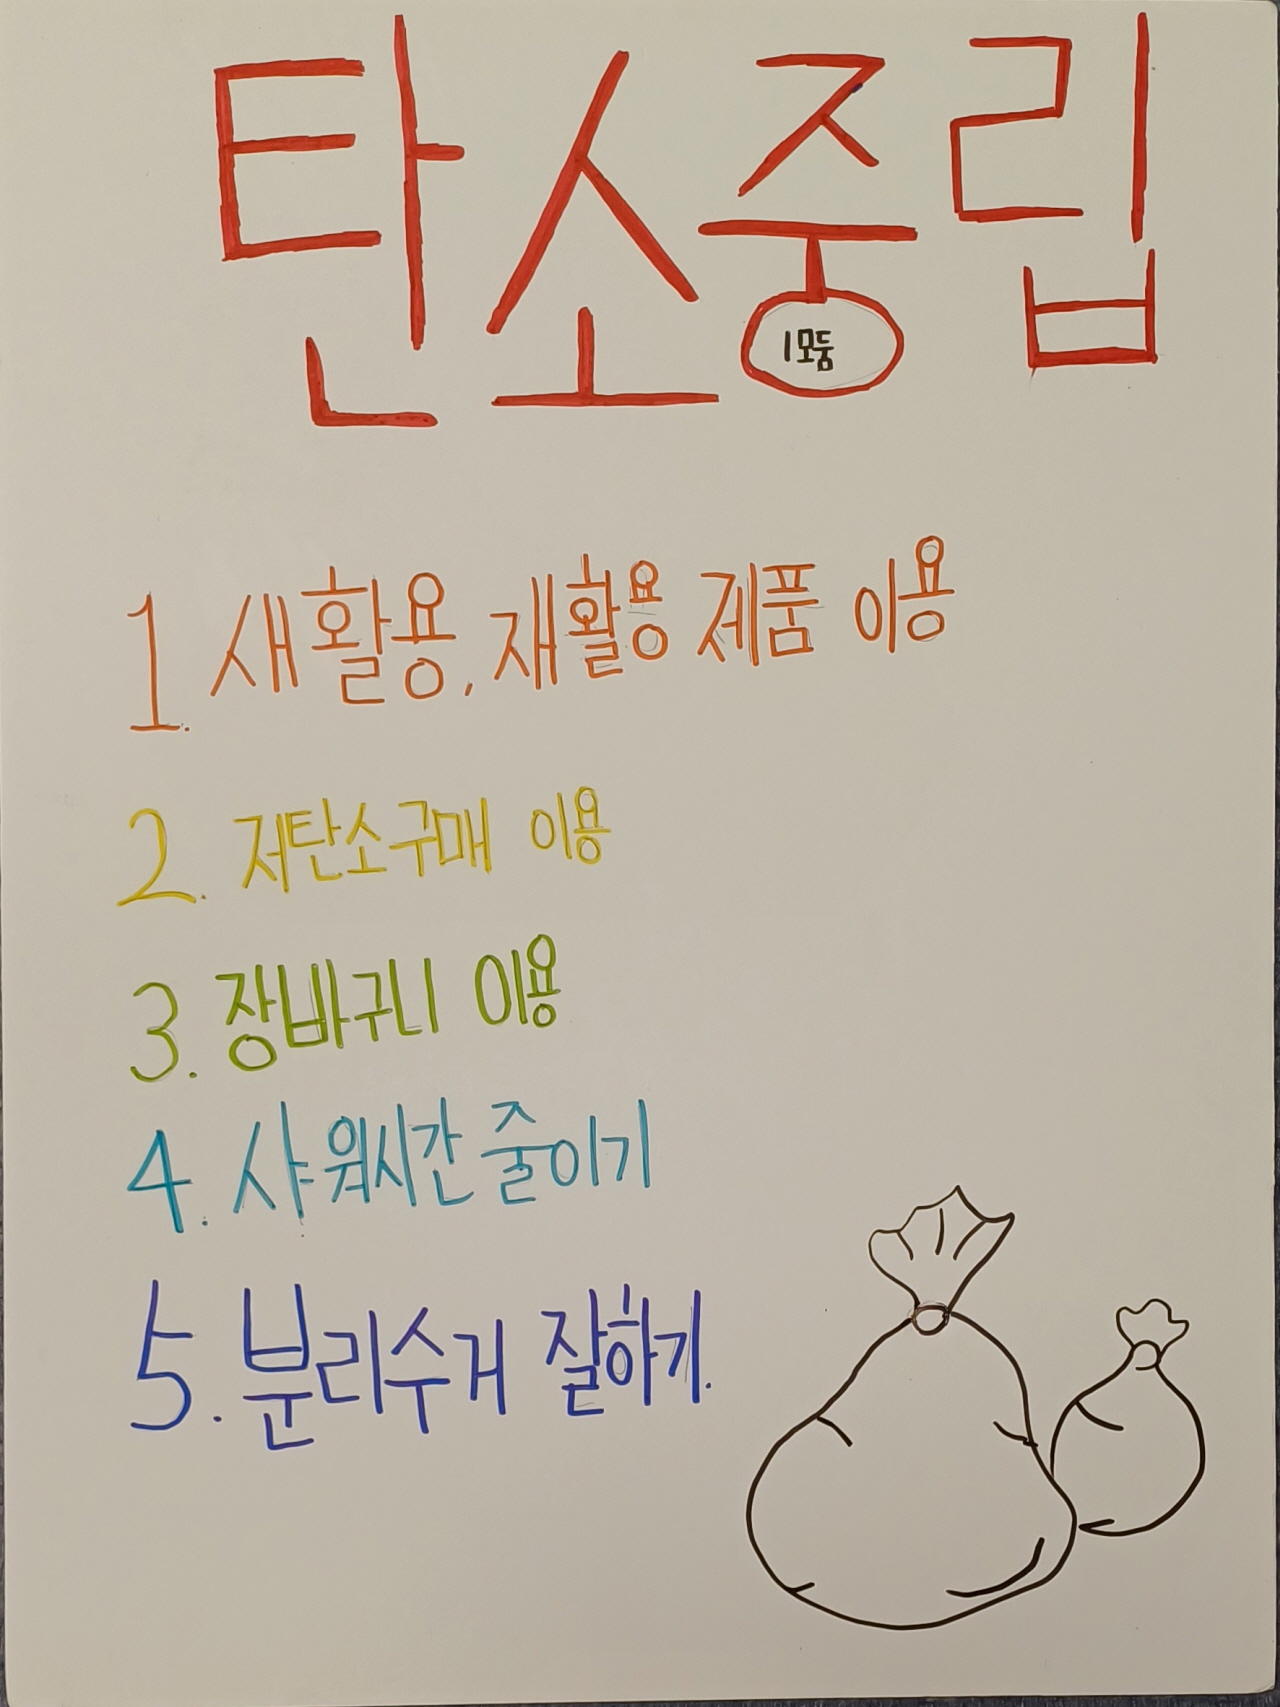 탄소중립
1모둠
1. 새활용, 재활용 제품 이용
2. 저탄소구매 이용
3. 장바구니 이용
4. 샤워시간 줄이기
5. 분리수거 잘하기.